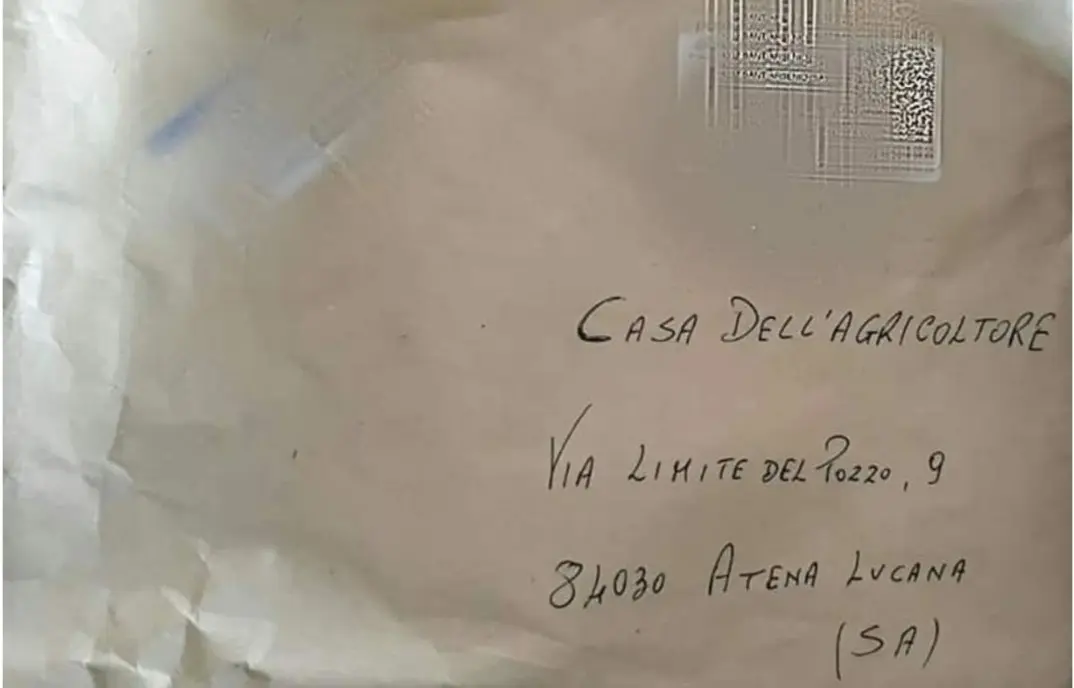 CASA DELL'AGRICOLTORE
VIA LIMITE DEL POZZO, 9
84030 ATENA LUCANA
(SA)